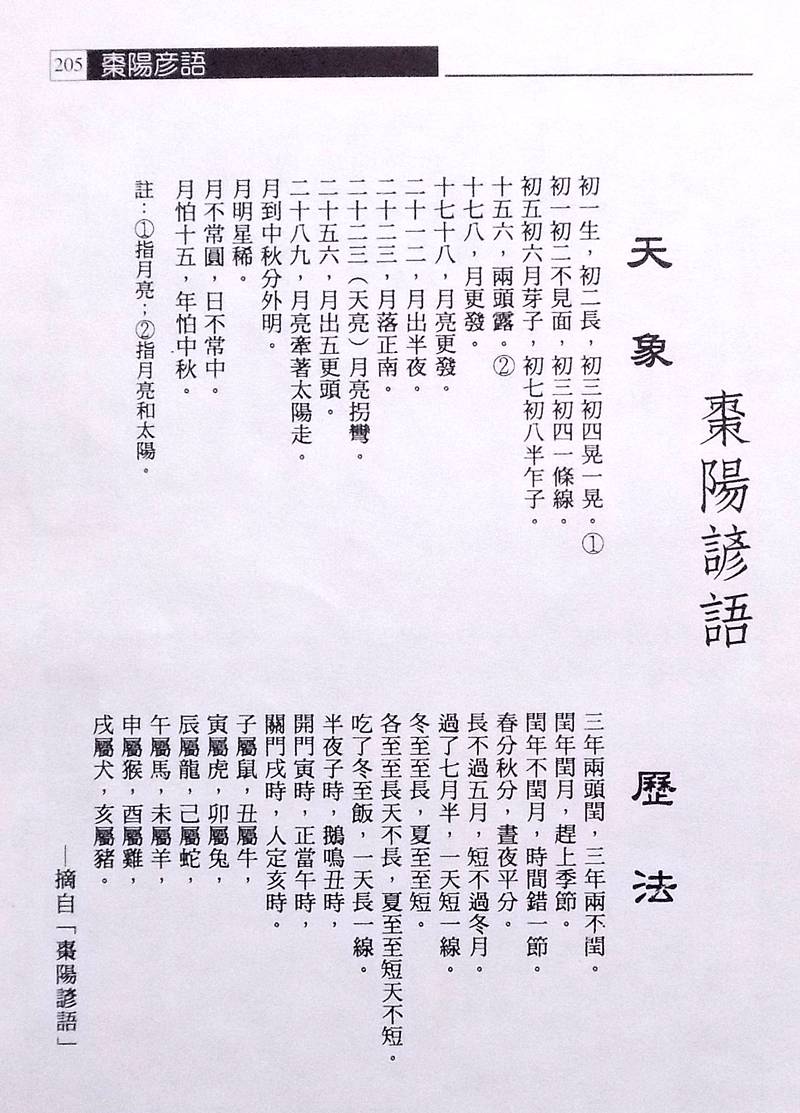 205 棗陽彦語
棗陽諺語
天象
初一生，初二長，初三初四晃一晃。①
初一初二不見面，初三初四一條線。
初五初六月芽子，初七初八半乍子。
十五六，兩頭露。②
十七八，月更發。
十七十八，月亮更發。
二十一二，月出半夜。
二十二三，月落正南。
二十二三（天亮）月亮拐彎。
二十五六，月出五更頭。
二十八九，月亮牽著太陽走。
月到中秋分外明。
月明星稀。
月不常圓，日不常中。
月怕十五，年怕中秋。
註：①指月亮；②指月亮和太陽。
歷法
三年兩頭閏，三年兩不閏。
閏年閏月，趕上季節。
閏年不閏月，時間錯一節。
春分秋分，晝夜平分。
長不過五月，短不過冬月。
過了七月半，一天短一線。
冬至至長，夏至至短。
各至至長天不長，夏至至短天不短。
吃了冬至飯，一天長一線。
半夜子時，鵝鳴丑時，
開門寅時，正當午時，
關門戌時，人定亥時。
子屬鼠，丑屬牛，
寅屬虎，卯屬兔，
辰屬龍，己屬蛇，
午屬馬，未屬羊，
申屬猴，酉屬雞，
戌屬犬，亥屬豬。
—摘自「棗陽諺語」